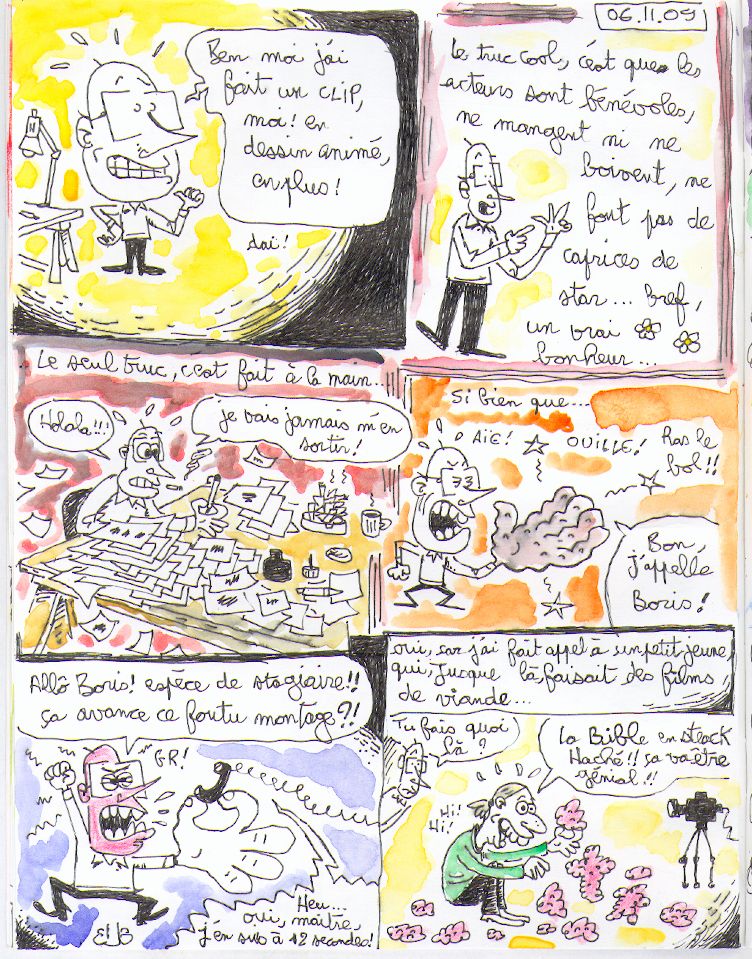 Ben moi j'ai
fait un CLIP,
moi! en
dessin animé,
en plus!
sai!
06.11.09
Le truc cool, c'est que les
acteurs sont bénévoles,
ne mangent ni ne
boivent, ne
font pas de
caprices de
star... bref,
un vrai
bonheur...
Le seul truc, c'est fait à la main...
Holala!!!
je vais jamais m'en
sortir!
Si bien que...
AïE!
OUILLE!
Ras le
bol!!
Bon,
j'appelle
Boris!
Allô Boris! espèce de stagiaire!!
ça avance ce foutu montage?!
GR!
Heu...
oui, maître,
j'en suis à 12 secondes!
oui, car j'ai fait appel à un petit jeune
qui, jusque là, faisait des films
de viande...
Tu fais quoi
là?
La Bible en steack
Haché!! ça va être
génial!!
Hi!
Hi!